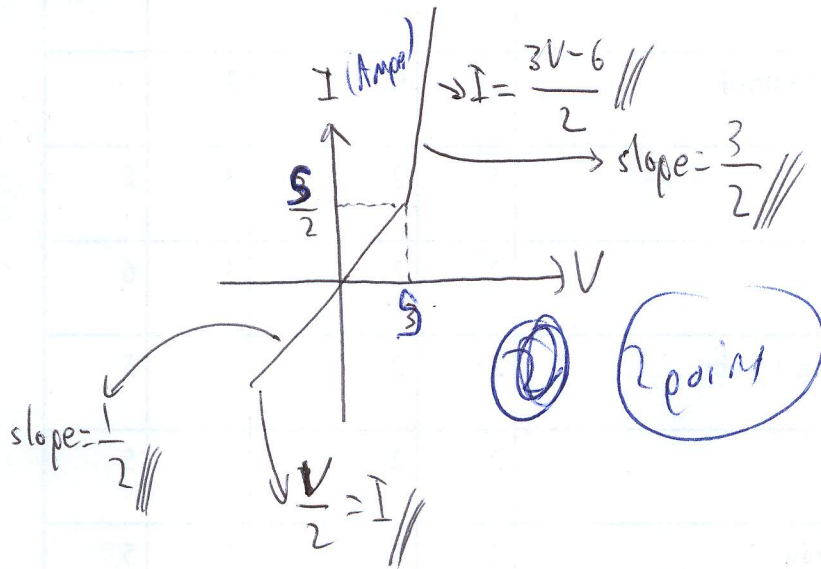 I (Amper)
→ I = (3V-6)/2
slope = 3/2
V
2 point
slope = 1/2
V/2 = I